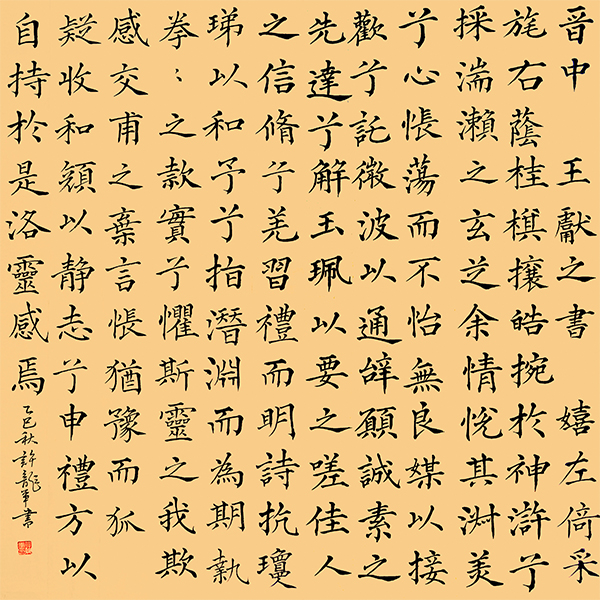 晋中 王獻之書 嬉左倚采
旄右蔭桂棋攘皓捥於神滸兮
採湍瀨之玄芝余情悅其淑美
兮心悵蕩而不怡無良媒以接
歡兮託微波以通辝願誠素之
先達兮解玉珮以要之嗟佳人
之信脩兮羌習禮而明詩抗瓊
珶以和予兮指潛淵而為期執
拳〻之款實兮懼斯靈之我欺
感交甫之棄言悵猶豫而狐
疑收和顏以静志兮申禮方以
自持於是洛靈感焉
乙巳秋許龍军書